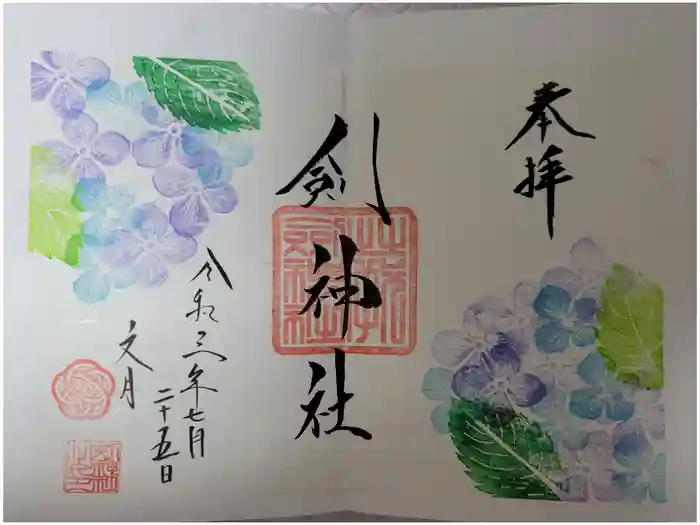 奉拝
剣神社
令和三年七月
二十五日
文月